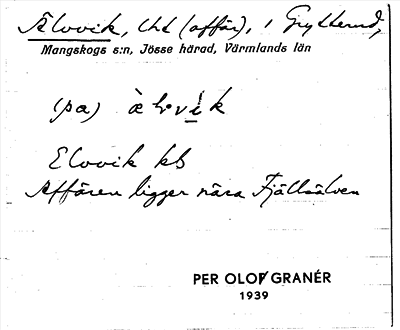 Älvvik, Lht (affär), i Grytterud,
Mangskogs s:n, Jösse härad, Värmlands län
(pa)
Elovik kb
Affären ligger nära Fjällsälven
PER OLOF GRANÉR
1939